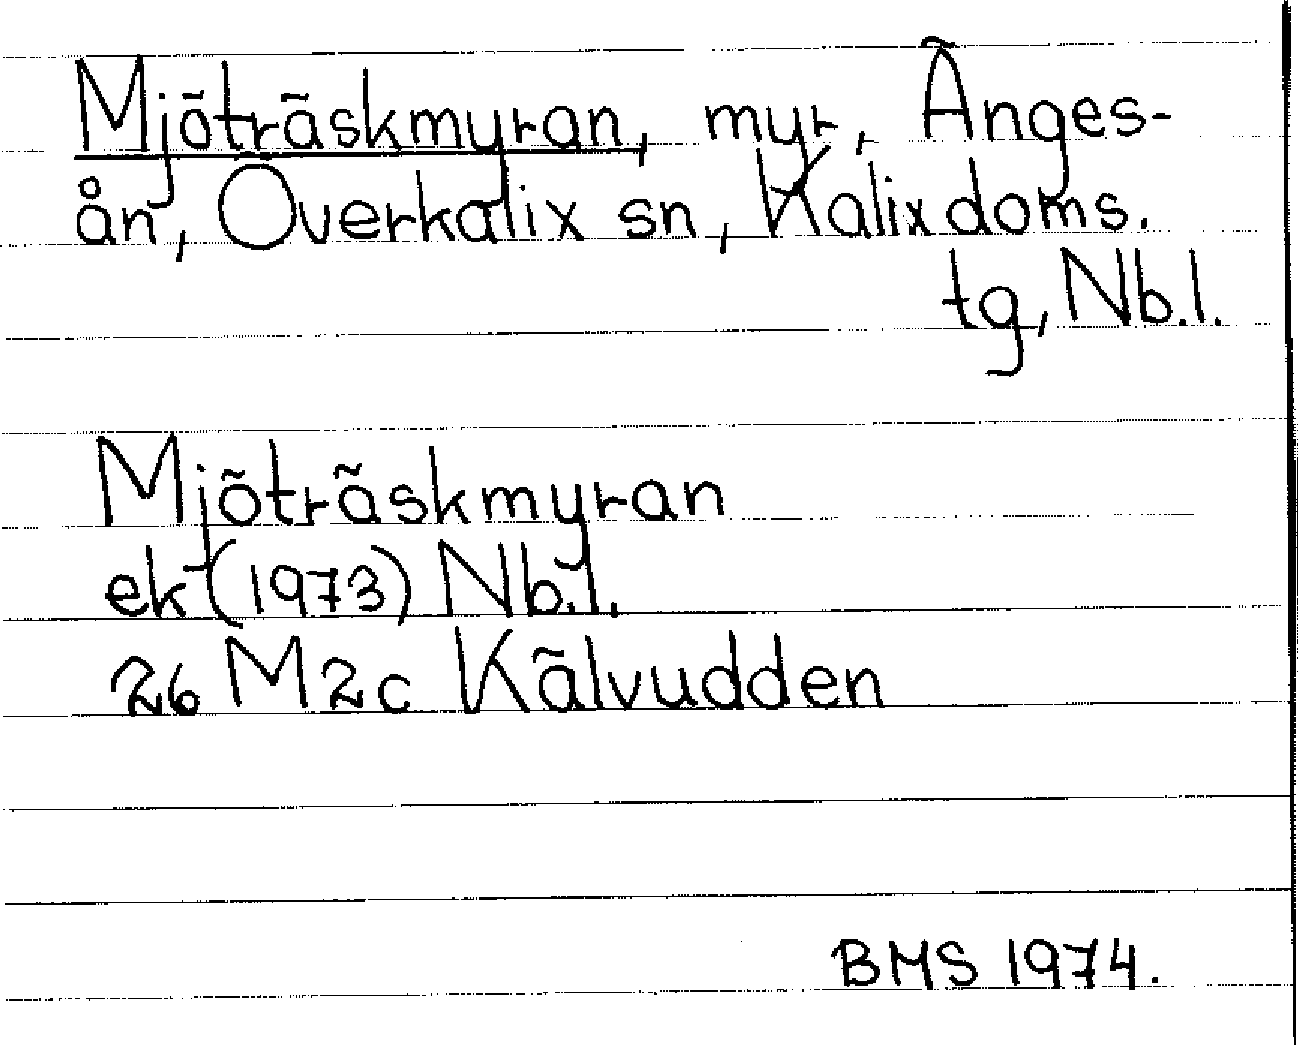 Mjöträskmyran, myr, Änges-
ån, Överkalix sn, Kalix doms.
tg, Nb.l.
Mjöträskmyran
ek (1973) Nb.l.
26 M 2c Kälvudden
BMS 1974.